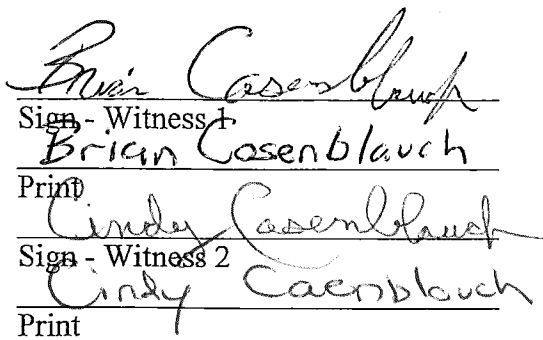 Brian Casenblauch
Sign - Witness 1
Brian Casenblauch
Print
Cindy Casenblauch
Sign - Witness 2
Cindy Caenblauch
Print